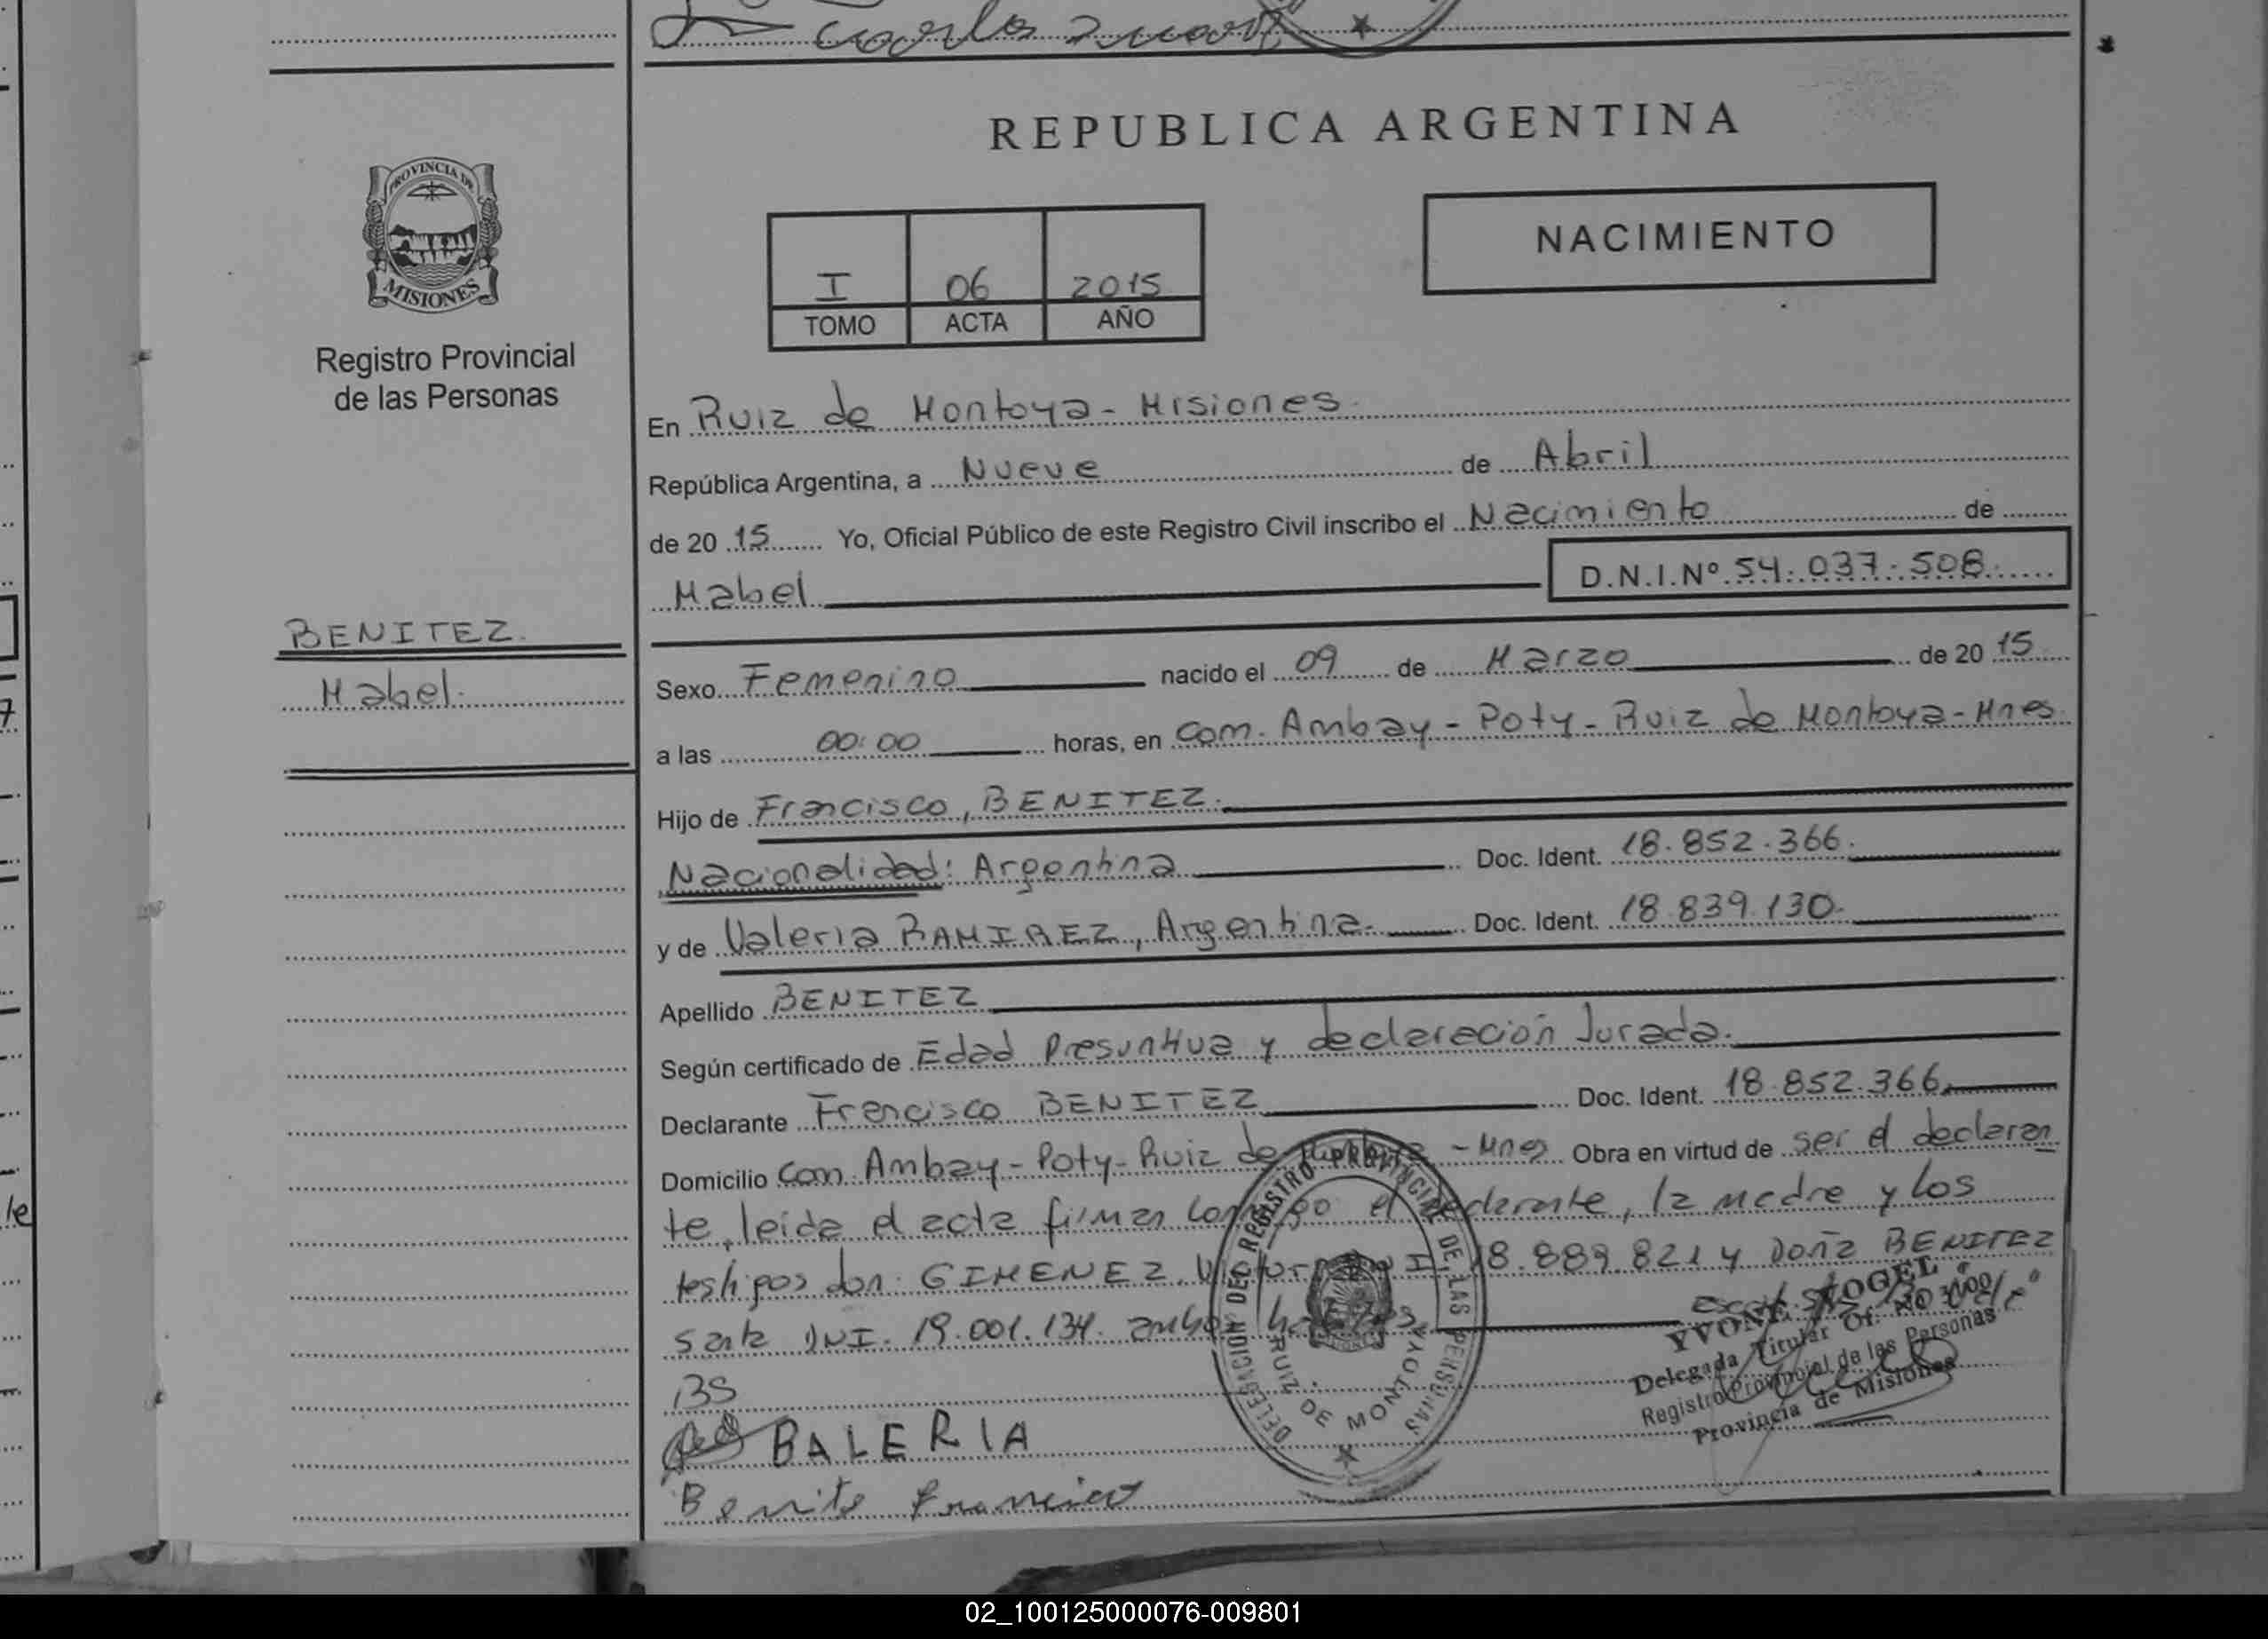 Carlos
REPUBLICA ARGENTINA
PROVINCIA DE
MISIONES
Registro Provincial
de las Personas
I 06 2015
TOMO ACTA AÑO
NACIMIENTO
En Ruiz de Montoya - Misiones
República Argentina, a Nueve de Abril
de 20 15 Yo, Oficial Público de este Registro Civil inscribo el Nacimiento de
Mabel D.N.I.Nº 54.037.508
BENITEZ
Mabel
Sexo Femenino nacido el 09 de Marzo de 20 15
a las 00:00 horas, en Com. Ambay - Poty - Ruiz de Montoya - Mnes
Hijo de Francisco, BENITEZ.
Nacionalidad: Argentina Doc. Ident. 18.852.366.
y de Valeria RAMIREZ, Argentina. Doc. Ident. 18.839.130.
Apellido BENITEZ
Según certificado de Edad Presuntiva y declaración Jurada.
Declarante Francisco BENITEZ Doc. Ident. 18.852.366
Domicilio Com. Ambay - Poty - Ruiz de Montoya - Mnes Obra en virtud de ser el declaran
te, leida el acta firman conmigo el declarante, la madre y los
testigos don: GIMENEZ, 18.889.821 y Doña BENITEZ
Santa DNI. 19.001.134. ambos
BS
BALERIA
Benite Francisco
DELEGACION DEL REGISTRO PROVINCIAL DE LAS PERSONAS
RUIZ DE MONTOYA
YVONE VOGEL
Delegada Titular Of.
Registro Provincial de las Personas
Provincia de Misiones
02_100125000076-009801